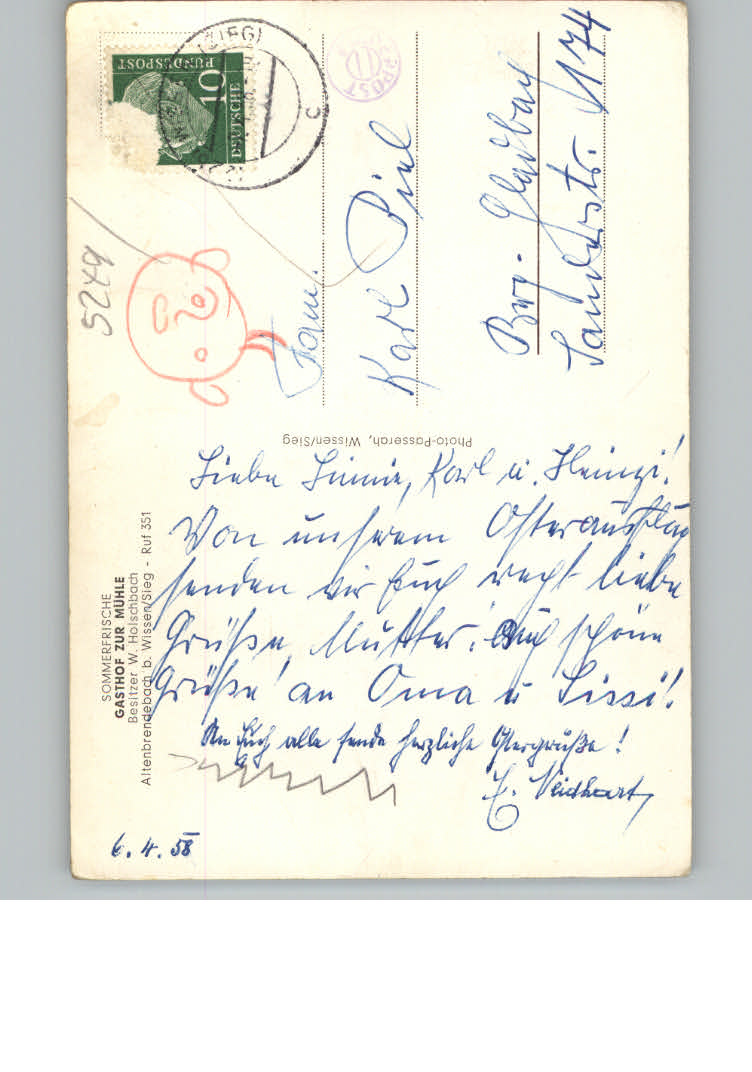 SOMMERFRISCHE
GASTHOF ZUR MÜHLE
Besitzer W. Holschbach
Altenbrendebach b. Wissen/Sieg - Ruf 351
6. 4. 58
Liebe Linnie, Karl u. Heinzi!
Von unserem Osterausflug
senden wir Euch recht liebe
Grüße, Mutter. Auch schöne
Grüße an Oma u Sissi!
An Euch alle sende herzliche Ostergrüße!
E. Neidhart
Photo-Passerah, Wissen/Sieg
5249
DEUTSCHE
BUNDESPOST
10
(SIEG)
c
POST
Fam.
Karl Piel
Berg. Gladbach
Sanderstr. 174